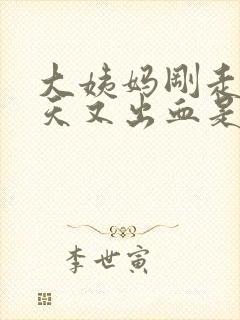 大姨妈刚走
天又出血是
李世寅